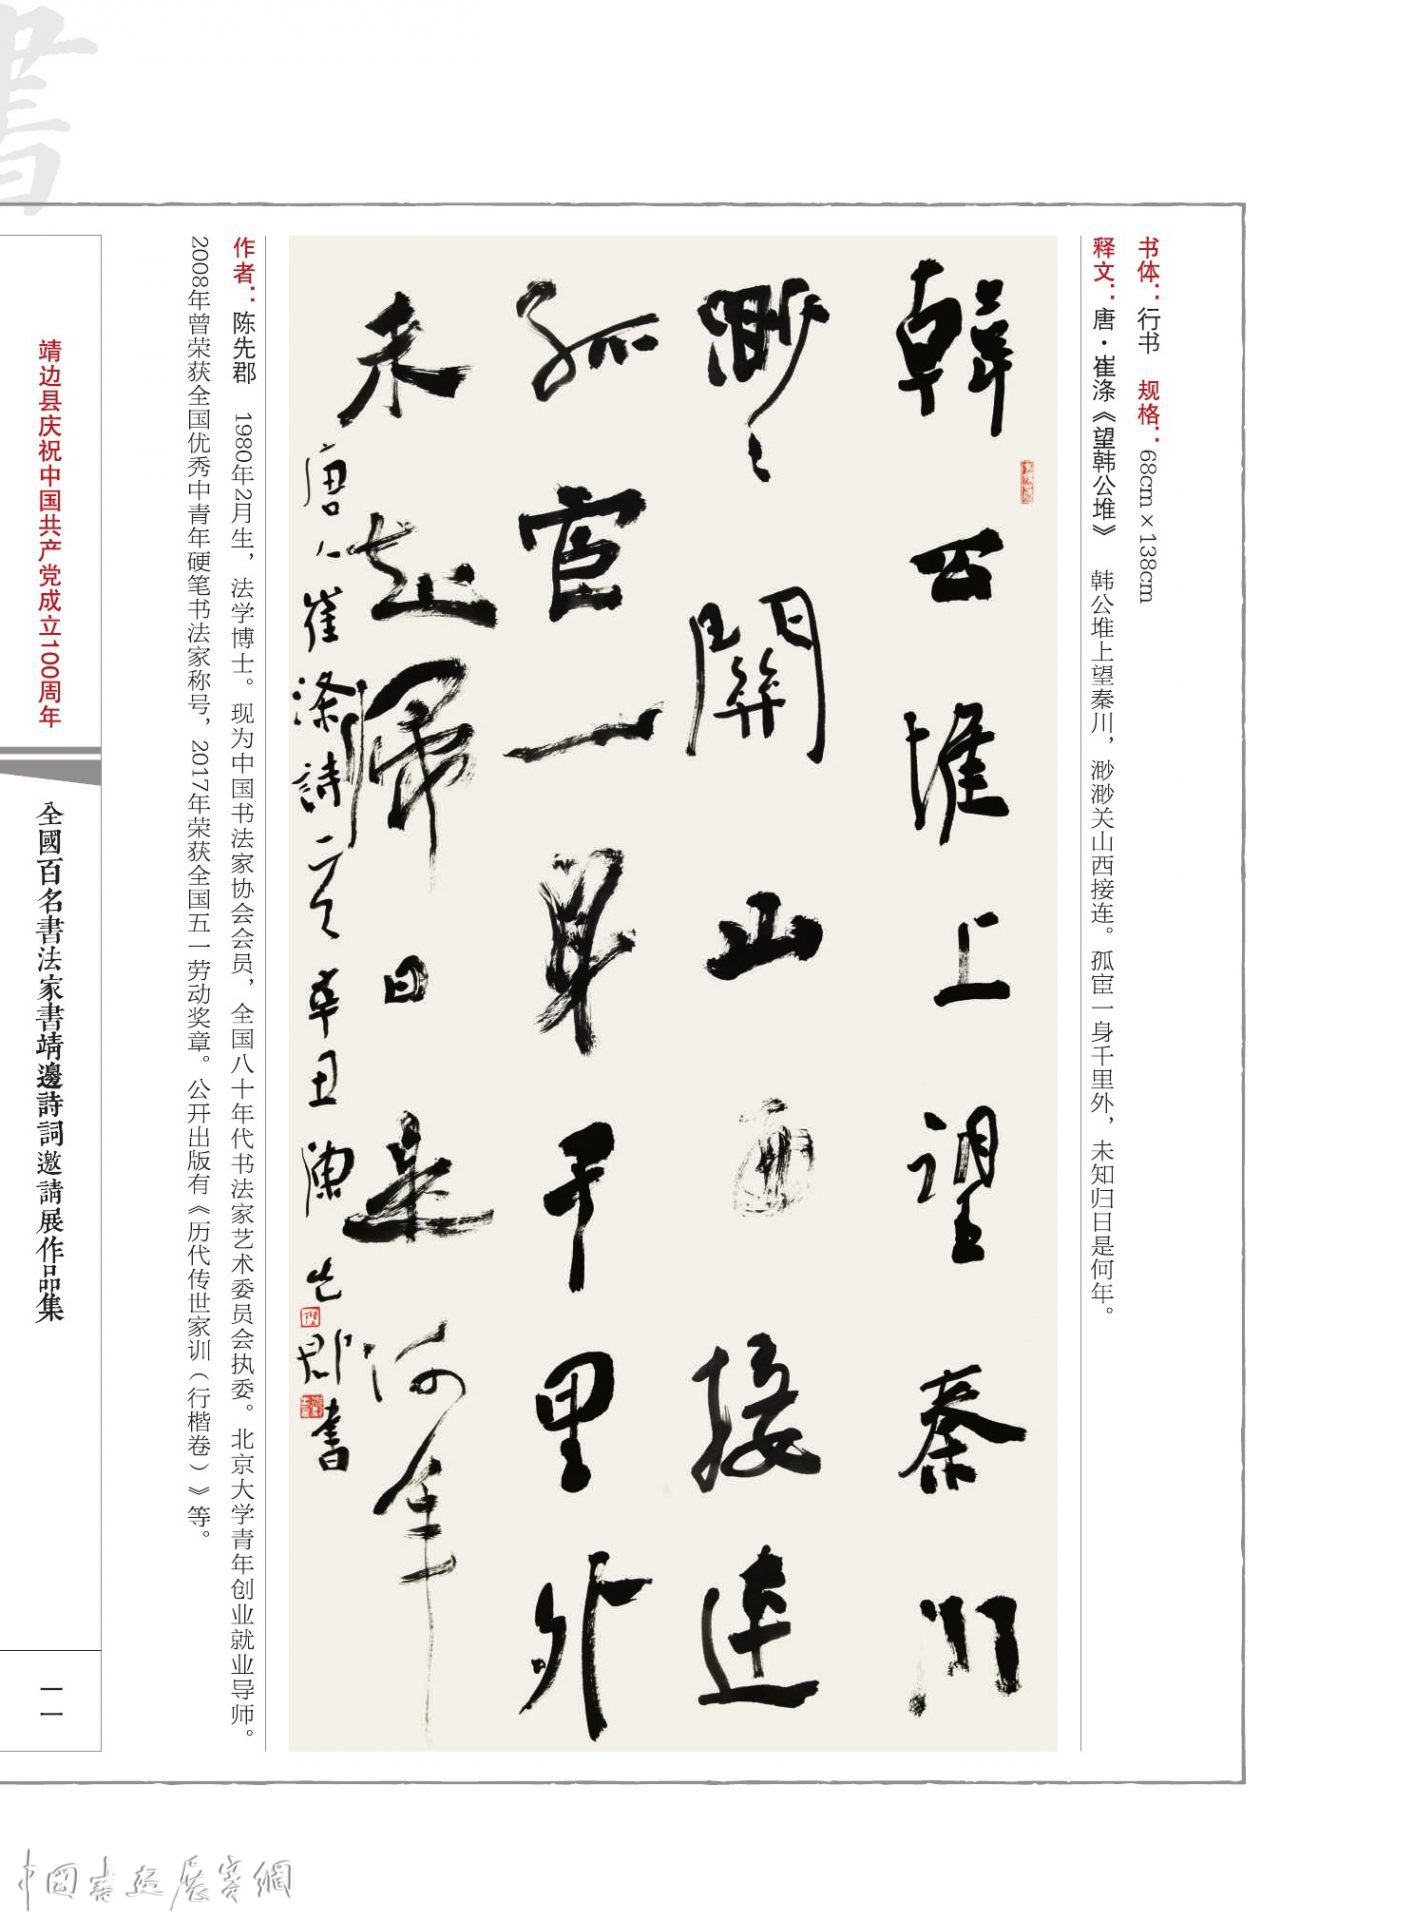 書
书体：行书　规格：68cm×138cm
释文：唐·崔涤《望韩公堆》　韩公堆上望秦川，渺渺关山西接连。孤宦一身千里外，未知归日是何年。
韓公堆上望秦川
渺〻關山西接連
孤宦一身千里外
未知歸日是何年
唐人崔滌詩一首辛丑陳先郡書
作者：陈先郡　1980年2月生，法学博士。现为中国书法家协会会员，全国八十年代书法家艺术委员会执委。北京大学青年创业就业导师。
2008年曾荣获全国优秀中青年硬笔书法家称号，2017年荣获全国五一劳动奖章。公开出版有《历代传世家训（行楷卷）》等。
靖边县庆祝中国共产党成立100周年
全國百名書法家書靖邊詩詞邀請展作品集
一一
中國書畫展賽網